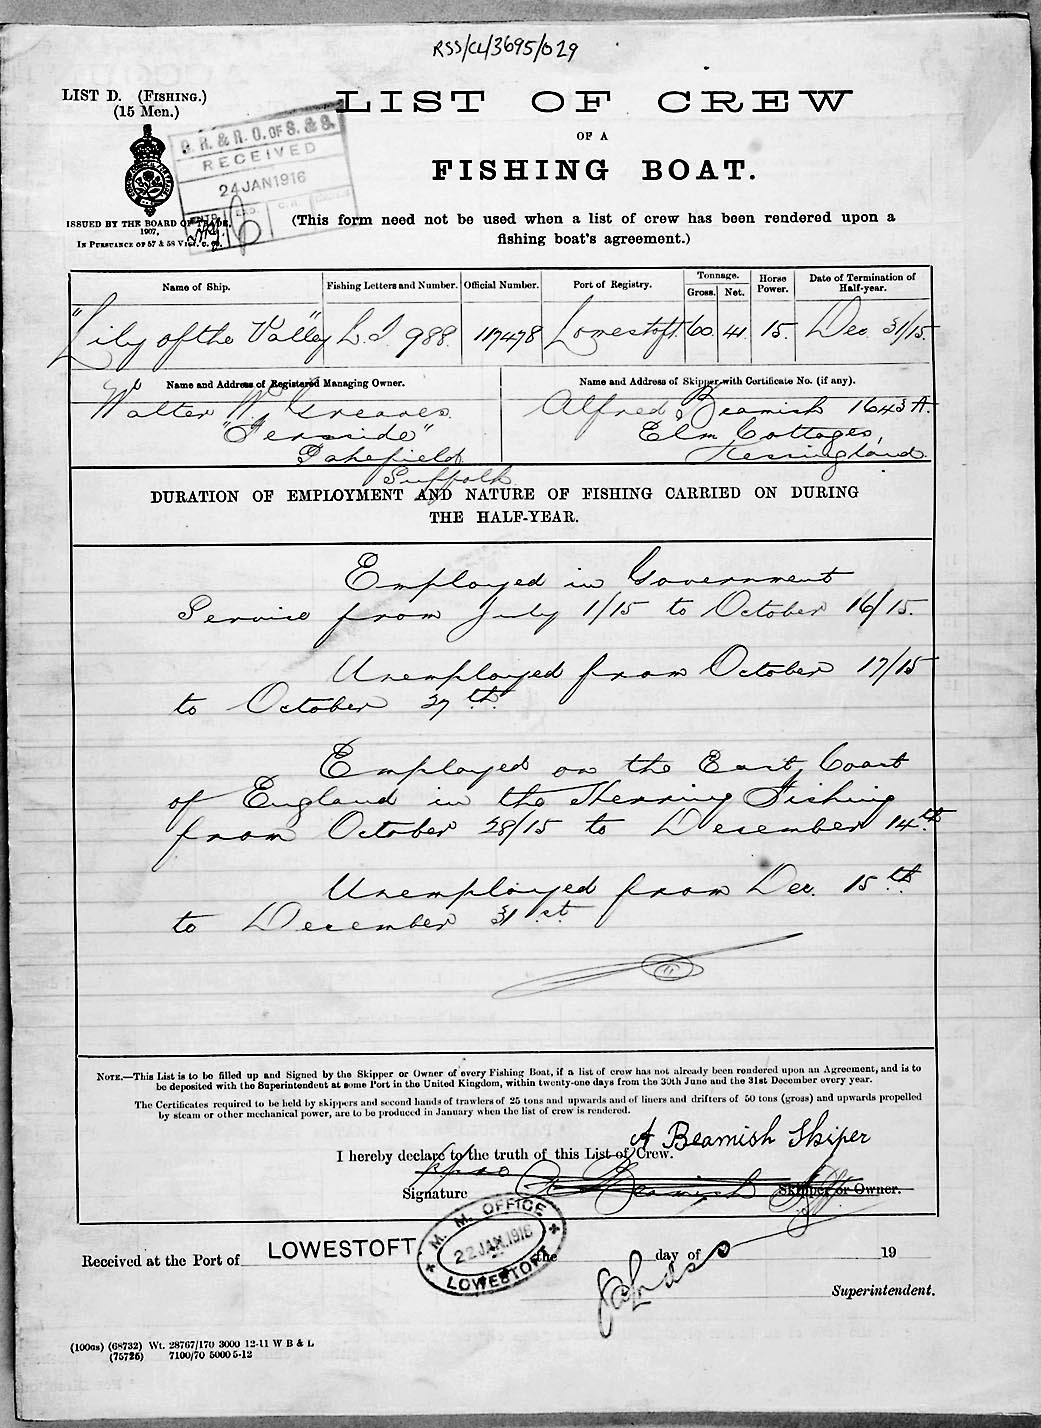 RSS/CL/3695/029
LIST D. (FISHING.)
(15 Men.)
LIST OF CREW
OF A
FISHING BOAT.
G. R. & R. O. OF S. & S.
RECEIVED
24 JAN 1916
ISSUED BY THE BOARD OF TRADE,
1907,
IN PURSUANCE OF 57 & 58 VICT. C. 60.
(This form need not be used when a list of crew has been rendered upon a
fishing boat's agreement.)
Name of Ship. Fishing Letters and Number. Official Number. Port of Registry. Tonnage. Gross. Net. Horse Power. Date of Termination of Half-year.
"Lily of the Valley" L.T. 988. 117478 Lowestoft. 60 41 15. Dec 31/15.
Name and Address of Registered Managing Owner. Name and Address of Skipper with Certificate No. (if any).
Walter W. Greaves Alfred Beamish 1643 A.
Elm Cottages,
Pakefield Kessingland
Suffolk
DURATION OF EMPLOYMENT AND NATURE OF FISHING CARRIED ON DURING
THE HALF-YEAR.
Employed in Government
Service from July 1/15 to October 16/15.
Unemployed from October 17/15
to October 27th.
Employed on the East Coast
of England in the Herring Fishing
from October 28/15 to December 14th
Unemployed from Dec. 15th
to December 31st.
NOTE.—This List is to be filled up and Signed by the Skipper or Owner of every Fishing Boat, if a list of crew has not already been rendered upon an Agreement, and is to
be deposited with the Superintendent at some Port in the United Kingdom, within twenty-one days from the 30th June and the 31st December every year.
The Certificates required to be held by skippers and second hands of trawlers of 25 tons and upwards and of liners and drifters of 50 tons (gross) and upwards propelled
by steam or other mechanical power, are to be produced in January when the list of crew is rendered.
A Beamish Skiper
I hereby declare to the truth of this List of Crew.
Signature A Beamish Skipper or Owner.
M. M. OFFICE
22 JAN. 1916
LOWESTOFT
Received at the Port of LOWESTOFT the day of 19
Superintendent.
(100as) (68732) Wt. 28767/170 3000 12-11 W B & L
(75726) 7100/70 5000 5-12